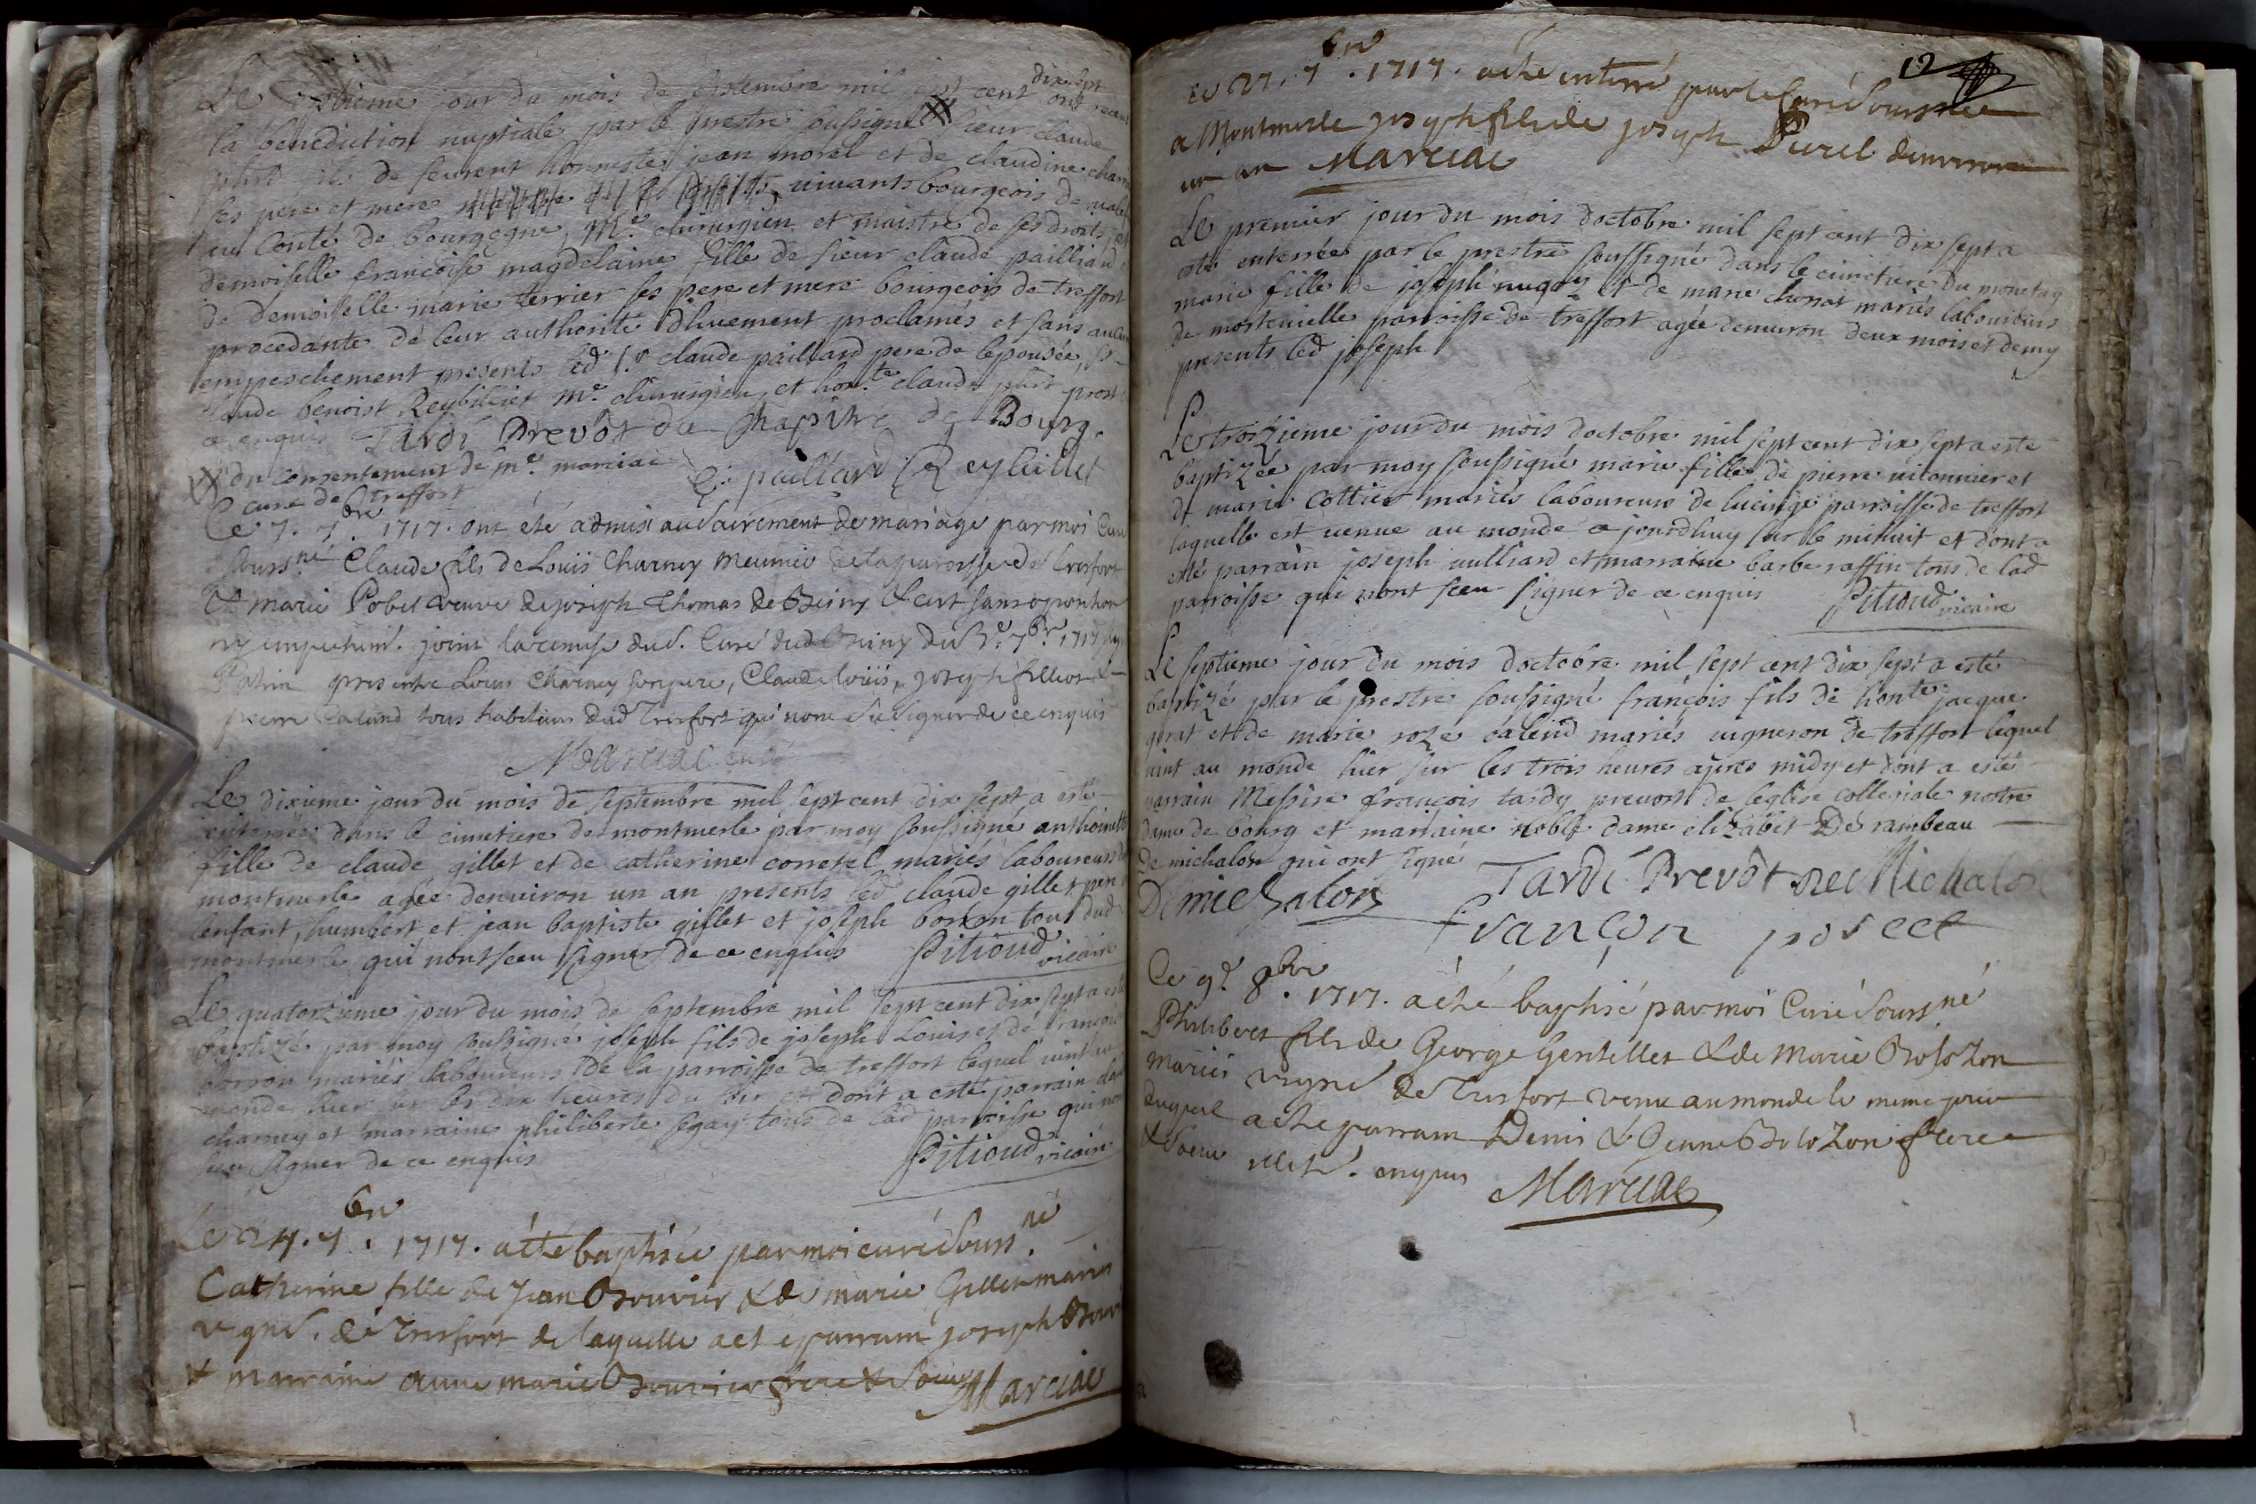 Le jour du mois de septembre mil sept cent dix sept ont receu
la benediction nuptiale par le prestre soussigné sieur claude
fils de feurent honneste jean morel et de claudine
ses pere et mere vivants bourgeois de
au Conté de bourgogne, Me. chirurgien et maistre de ses droits, et
demoiselle francoise magdelaine fille de sieur claude pailliard,
de demoiselle marie terrier ses pere et mere bourgeois de treffort
procedante de leur authorité dhuement proclamés et sans aucun
empeschement presents led sr claude paillard pere de lepousée, sr
claude benoist Reybillet me. chirurgien, et hon.te claude
ce enquis Tardi Prevôt du Chapitre de Bourg.
du consentement de me. marciac C. paillard Reybillet
cure de treffort
Ce 7. 7bre 1717. ont été admis au sacrement de mariage par moi Curé
sourné Claude fils de Loüis Charney meunier de la parroisse de Tresfort
& marie Pobel veuve de joseph Thomas de & sans oposition
ny empechemt. joint la remise dud. Curé dud du 3e 7bre 1717
presents Louis Charney son pere, Claude loüis, joseph fillion &
pierre Caland tous habitans dud Tresfort qui nont sçu signer de ce enquis
Marciac curé
Le dixieme jour du mois de septembre mil sept cent dix sept a esté
enterrée dans le cimetiere de montmerle par moy soussigné anthoinette
fille de claude gillet et de catherine corretel mariés laboureurs de
montmerle agée denviron un an presents led claude gillet pere de
lenfant, humbert et jean baptiste gillet et joseph borron tous dud
montmerle qui nont sceu signer de ce enquis Pitioud vicaire
Le quatorzieme jour du mois de septembre mil sept cent dix sept a esté
baptizé par moy soussigné joseph fils de joseph Louis et de françoise
borron mariés laboureurs de la parroisse de treffort lequel vint au
monde hier sur les dix heures du soir et dont a esté parrain
charney et marraine philiberte segay tous de lad parroisse qui nont
sceu signer de ce enquis Pitioud vicaire
Le 24. 7bre. 1717. a été baptisée par moi curé sourné.
Catherine fille de Jean Bouvier & de marie Gillet mariés
vgne. de Tresfort de laquelle a été parrain joseph Bouvier
& marraine anne marie Bouvier frere & soeur Marciac
12
Ce 27. 7bre. 1717. a été enterré par le Curé sourné
a Montmerle joseph fils de joseph Purel denviron
un an Marciac
Le premier jour du mois doctobre mil sept cent dix sept a
esté enterrée par le prestre soussigné dans le cimetiere du monetay
marie fille de joseph nugues et de marie chonat mariés laboureurs
de mortevielle parroisse de treffort agée denviron deux mois et demy
presents led joseph
Le troizieme jour du mois doctobre mil sept cent dix sept a este
baptizée par moy soussigné marie fille de pierre vilonnier et
de marie Cottier mariés laboureurs de lucinge parroisse de treffort
laquelle est venue au monde a jourdhuy sur le minuit et dont a
esté parrain joseph julliard et marraine barbe raffin tous de lad
parroisse qui nont sceu signer de ce enquis Pitioud vicaire
Le septieme jour du mois doctobre mil sept cent dix sept a esté
baptizé par le prestre soussigné françois fils de honte jacque
gorat et de marie roze caland mariés vigneron de treffort lequel
vint au monde hier sur les trois heures apres midy et dont a esté
parrain Messire françois tardy prevost de leglise collegiale notre
dame de bourg et marraine noble dame elizabet De rambeau
de michalon qui ont signé Tardi Prevôt De Michalon
De michalon françon
Ce 9e 8bre. 1717. a été baptisé par moi Curé sourné
Philibert fils de George Gentillet & de Marie Bolozon
mariés vigne. de Tresfort venu au monde le meme jour
duquel a été parrain Denis & Jeanne Bolozon frere
& soeur . enquis Marciac